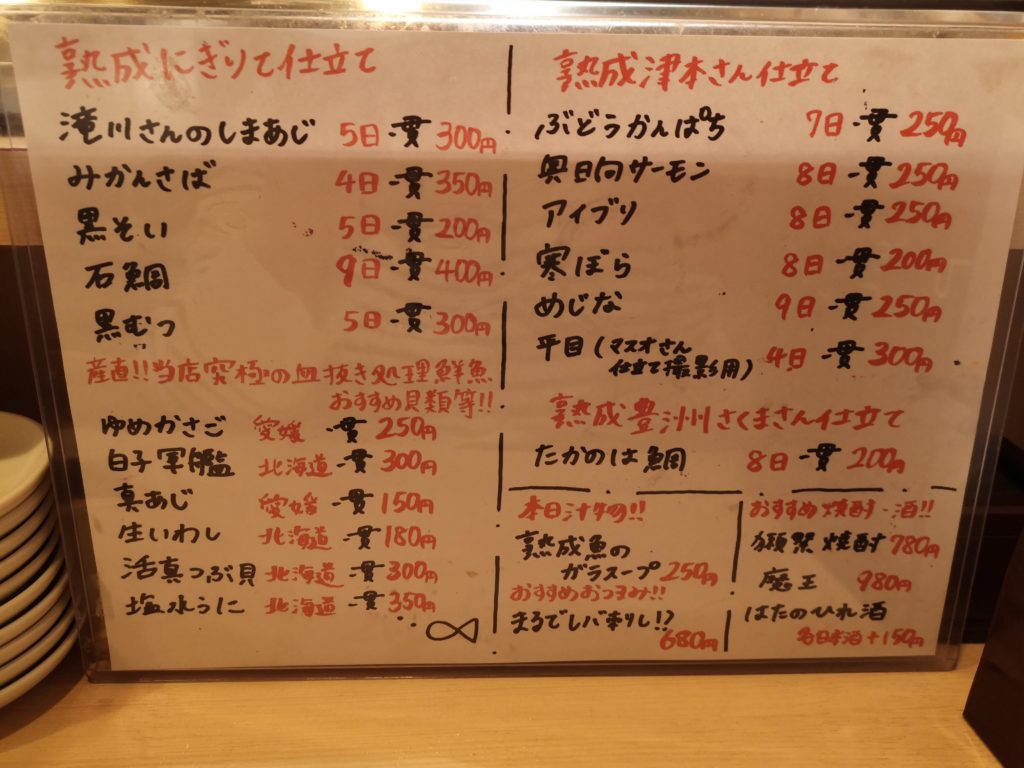 熟成にぎりて仕立て
滝川さんのしまあじ 5日 一貫 300円
みかんさば 4日 一貫 350円
黒そい 5日 一貫 200円
石鯛 9日 一貫 400円
黒むつ 5日 一貫 300円
産直!!当店究極の血抜き処理鮮魚
おすすめ貝類等!!
ゆめかさご 愛媛 一貫 250円
白子軍艦 北海道 一貫 300円
真あじ 愛媛 一貫 150円
生いわし 北海道 一貫 180円
活真つぶ貝 北海道 一貫 300円
塩水うに 北海道 一貫 350円
熟成津本さん仕立て
ぶどうかんぱち 7日 一貫 250円
奥日向サーモン 8日 一貫 250円
アイブリ 8日 一貫 250円
寒ぼら 8日 一貫 200円
めじな 9日 一貫 250円
平目(マスオさん
仕立て撮影用) 4日 一貫 300円
熟成豊洲さくまさん仕立て
たかのは鯛 8日 一貫 200円
本日汁物!!
熟成魚の
ガラスープ 250円
おすすめおつまみ!!
まるでレバ刺し!?
680円
おすすめ焼酎・酒!!
獺祭焼酎 780円
魔王 980円
はたのひれ酒
各日本酒+150円